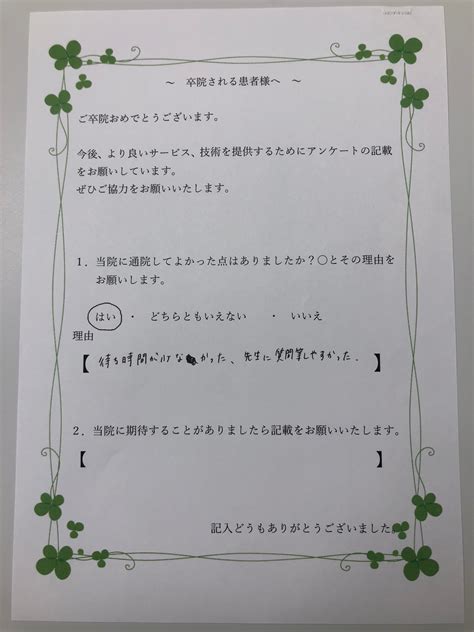 ～　卒院される患者様へ　～
ご卒院おめでとうございます。
今後、より良いサービス、技術を提供するためにアンケートの記載
をお願いしています。
ぜひご協力をお願いいたします。
1．当院に通院してよかった点はありましたか？○とその理由を
お願いします。
はい　・　どちらともいえない　・　いいえ
理由
【 待ち時間が少なかった、先生に質問等しやすかった. 】
2．当院に期待することがありましたら記載をお願いいたします。
【　】
記入どうもありがとうございました。